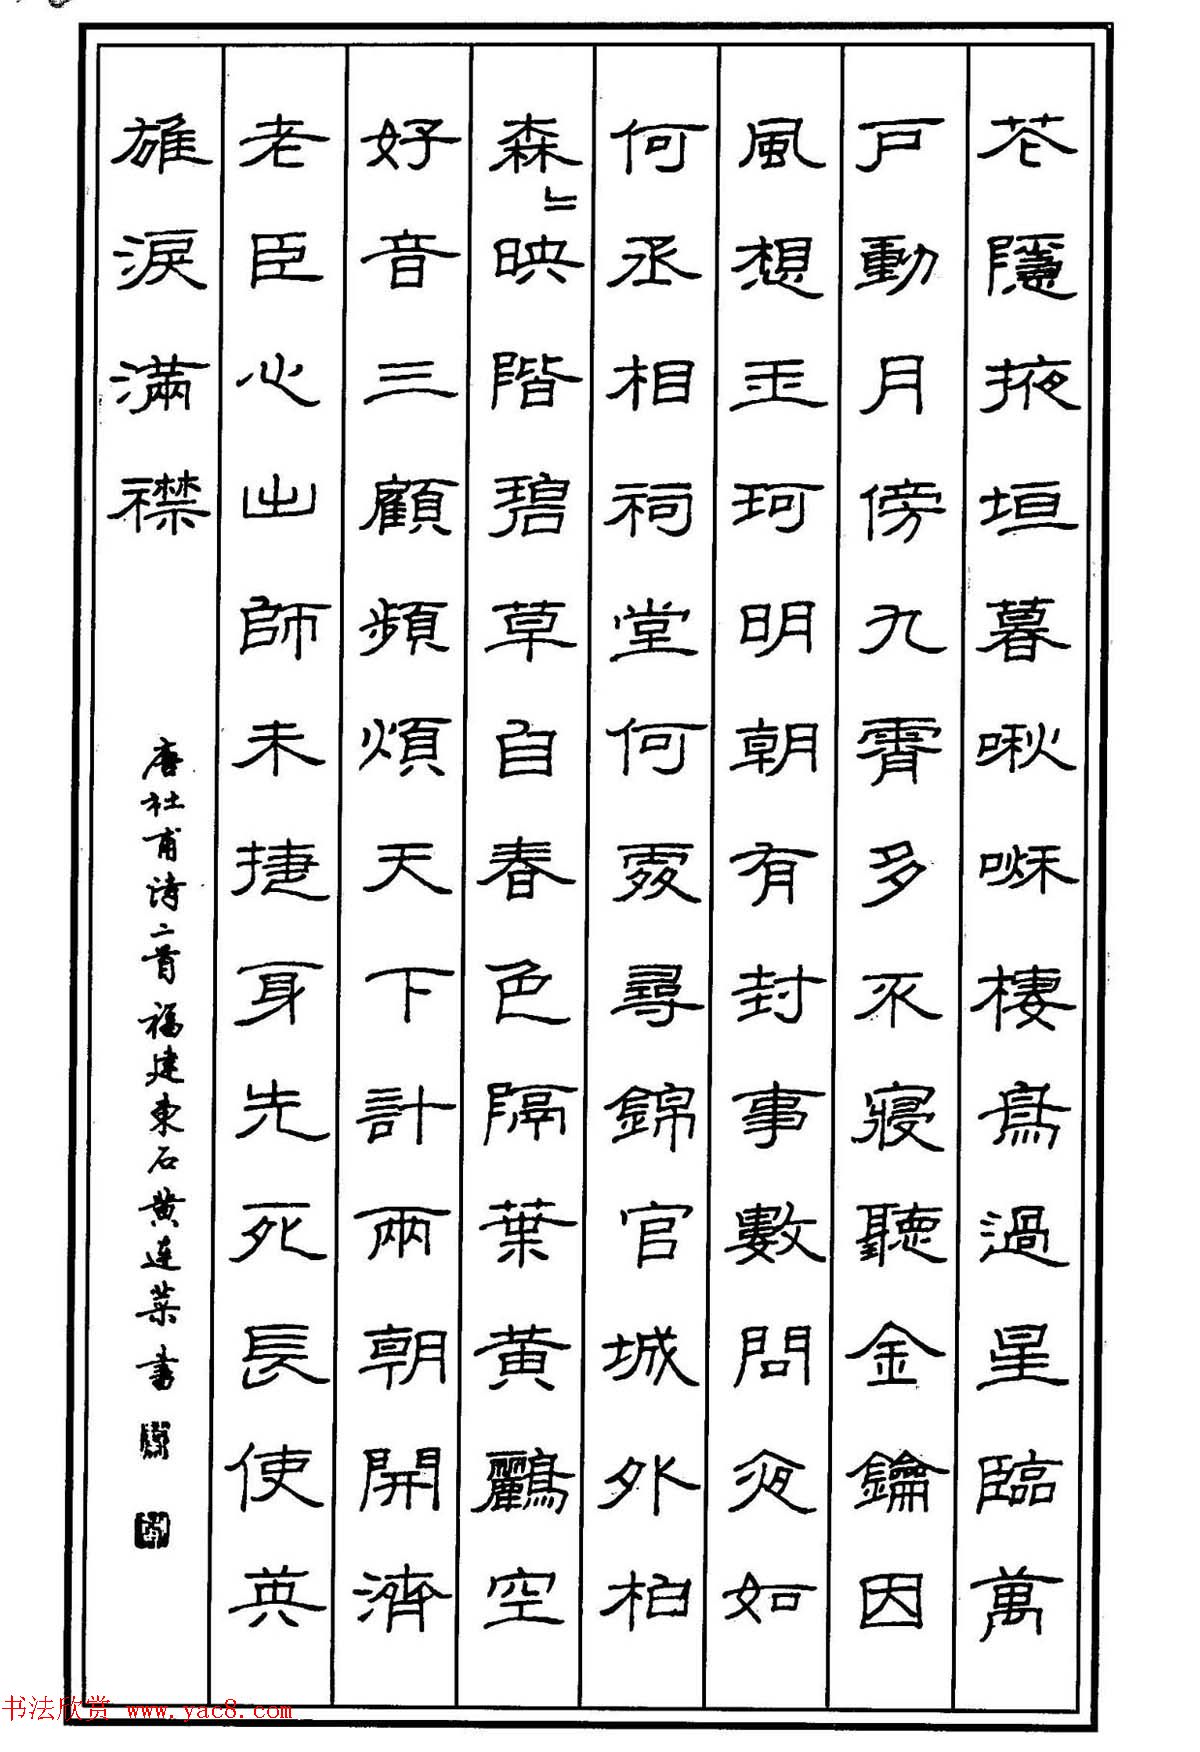 花隱掖垣暮啾啾棲鳥過星臨萬
戶動月傍九霄多不寢聽金鑰因
風想玉珂明朝有封事數問夜如
何丞相祠堂何處尋錦官城外柏
森〻映階碧草自春色隔葉黃鸝空
好音三顧頻煩天下計兩朝開濟
老臣心出師未捷身先死長使英
雄淚滿襟
唐杜甫诗二首 福建東石黄连菜書
书法欣赏 www.yac8.com